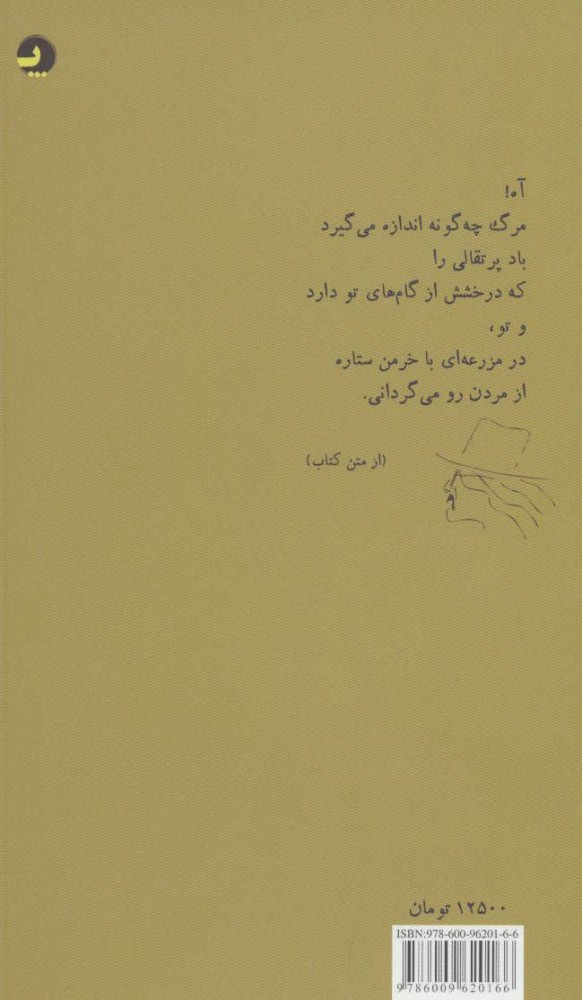 پ
آه!
مرگ چه‌گونه اندازه می‌گیرد
باد پرتقالی را
که درخشش از گام‌های تو دارد
و تو،
در مزرعه‌ای با خرمن ستاره
از مردن رو می‌گردانی.
(از متن کتاب)
۱۲۵۰۰ تومان
ISBN:978-600-96201-6-6
9 786009 620166